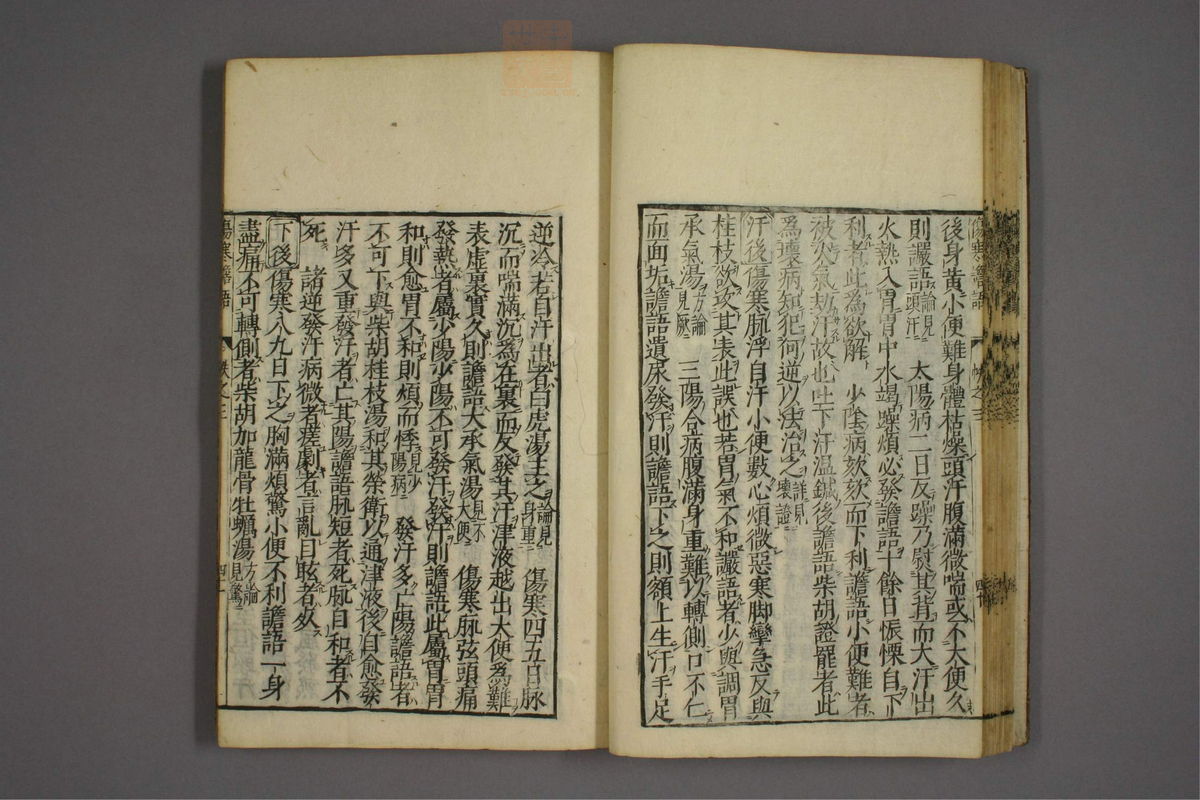 後身黄小便難身體枯燥頭汗腹滿微喘或不大便久
則讝語論見頭汗　太陽病二日反躁乃熨其背而大汗出
火熱入胃胃中水竭躁煩必發譫語十餘日振慄自下
利者此為欲解　少陰病欬欬而下利譫語小便難者
被火氣劫汗故也吐下汗温鍼後譫語柴胡證罷者此
為壞病知犯何逆以法治之詳見壞證
汗後傷寒脉浮自汗小便數心煩微惡寒脚攣急反與
桂枝欲攻其表此誤也若胃氣不和讝語者少與調胃
承氣湯方論見厥　三陽合病腹滿身重難以轉側口不仁
而面垢譫語遺尿發汗則譫語下之則額上生汗手足
逆冷若自汗出者白虎湯主之論見身重　傷寒四五日脉
沉而喘滿沉為在裏而反發其汗津液越出大便為難
表虛裏實久則譫語大承氣湯見不大便　傷寒脉弦頭痛
發熱者屬少陽少陽不可發汗發汗則譫語此屬胃胃
和則愈胃不和則煩而悸見少陽病　發汗多亡陽譫語者
不可下與柴胡桂枝湯和其榮衛以通津液後自愈發
汗多又重發汗者亡其陽譫語脉短者死脉自和者不
死　諸逆發汗病微者瘥劇者言亂目眩者死
下後傷寒八九日下之胸滿煩驚小便不利譫語一身
盡痛不可轉側者柴胡加龍骨牡蠣湯方論見驚
傷寒譫語